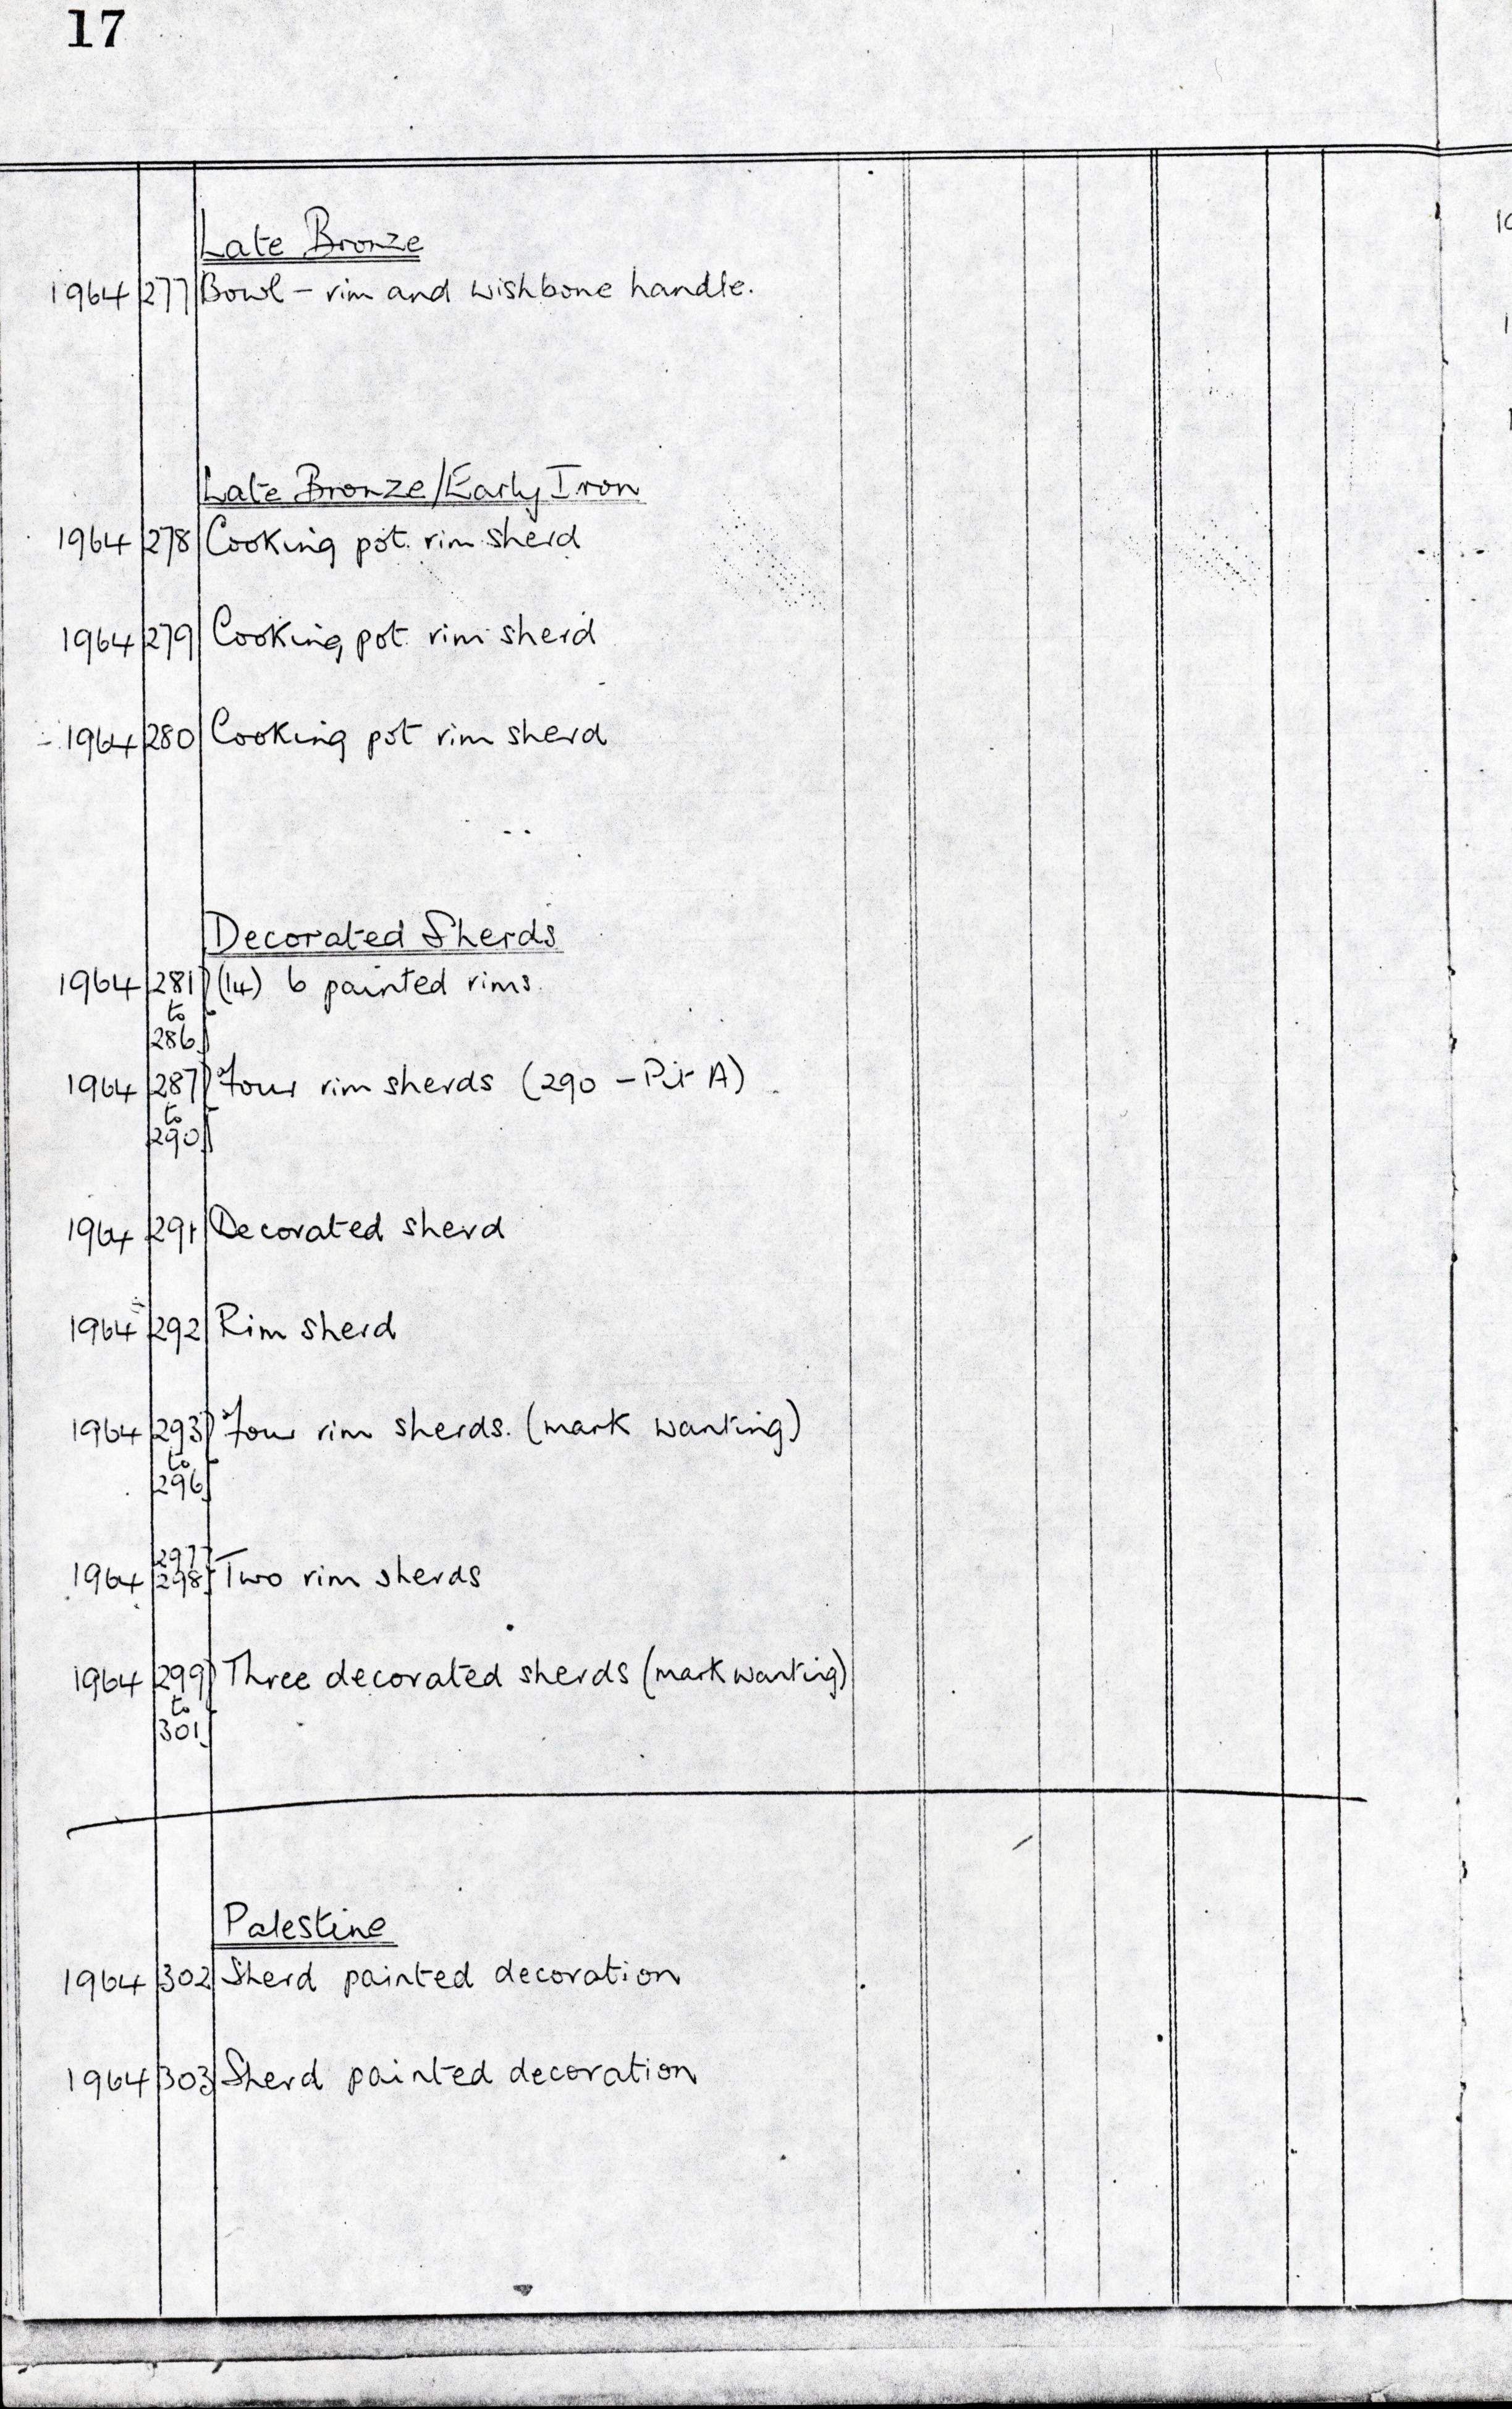 17
Late Bronze
1964 277 Bowl - rim and wishbone handle.
Late Bronze/Early Iron
1964 278 Cooking pot rim sherd
1964 279 Cooking pot rim sherd
1964 280 Cooking pot rim sherd
Decorated Sherds
1964 281 (14) 6 painted rims.
to
286
1964 287 Four rim sherds (290 - Pit A)
to
290
1964 291 Decorated sherd
1964 292 Rim sherd
1964 293 Four rim sherds. (mark wanting)
to
296
297
1964 298 Two rim sherds
1964 299 Three decorated sherds (mark wanting)
to
301
Palestine
1964 302 Sherd painted decoration
1964 303 Sherd painted decoration